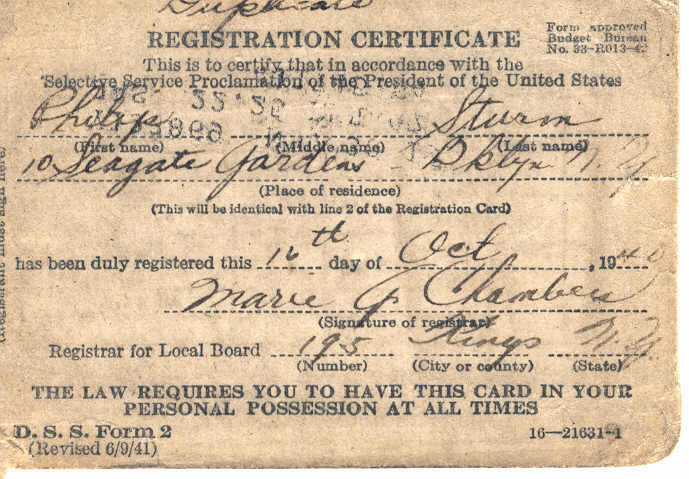 Duplicate
REGISTRATION CERTIFICATE
Form approved
Budget Bureau
No. 33-R013-42
This is to certify that in accordance with the
Selective Service Proclamation of the President of the United States
Philip Sturm
(First name) (Middle name) (Last name)
10 Seagate Gardens Bklyn N.Y.
(Place of residence)
(This will be identical with line 2 of the Registration Card)
has been duly registered this 16th day of Oct, 1940
Marie G. Chambers
(Signature of registrar)
Registrar for Local Board 195 Kings N.Y.
(Number) (City or county) (State)
THE LAW REQUIRES YOU TO HAVE THIS CARD IN YOUR
PERSONAL POSSESSION AT ALL TIMES
D. S. S. Form 2
(Revised 6/9/41)
16—21631-1
(Registrant must sign here)